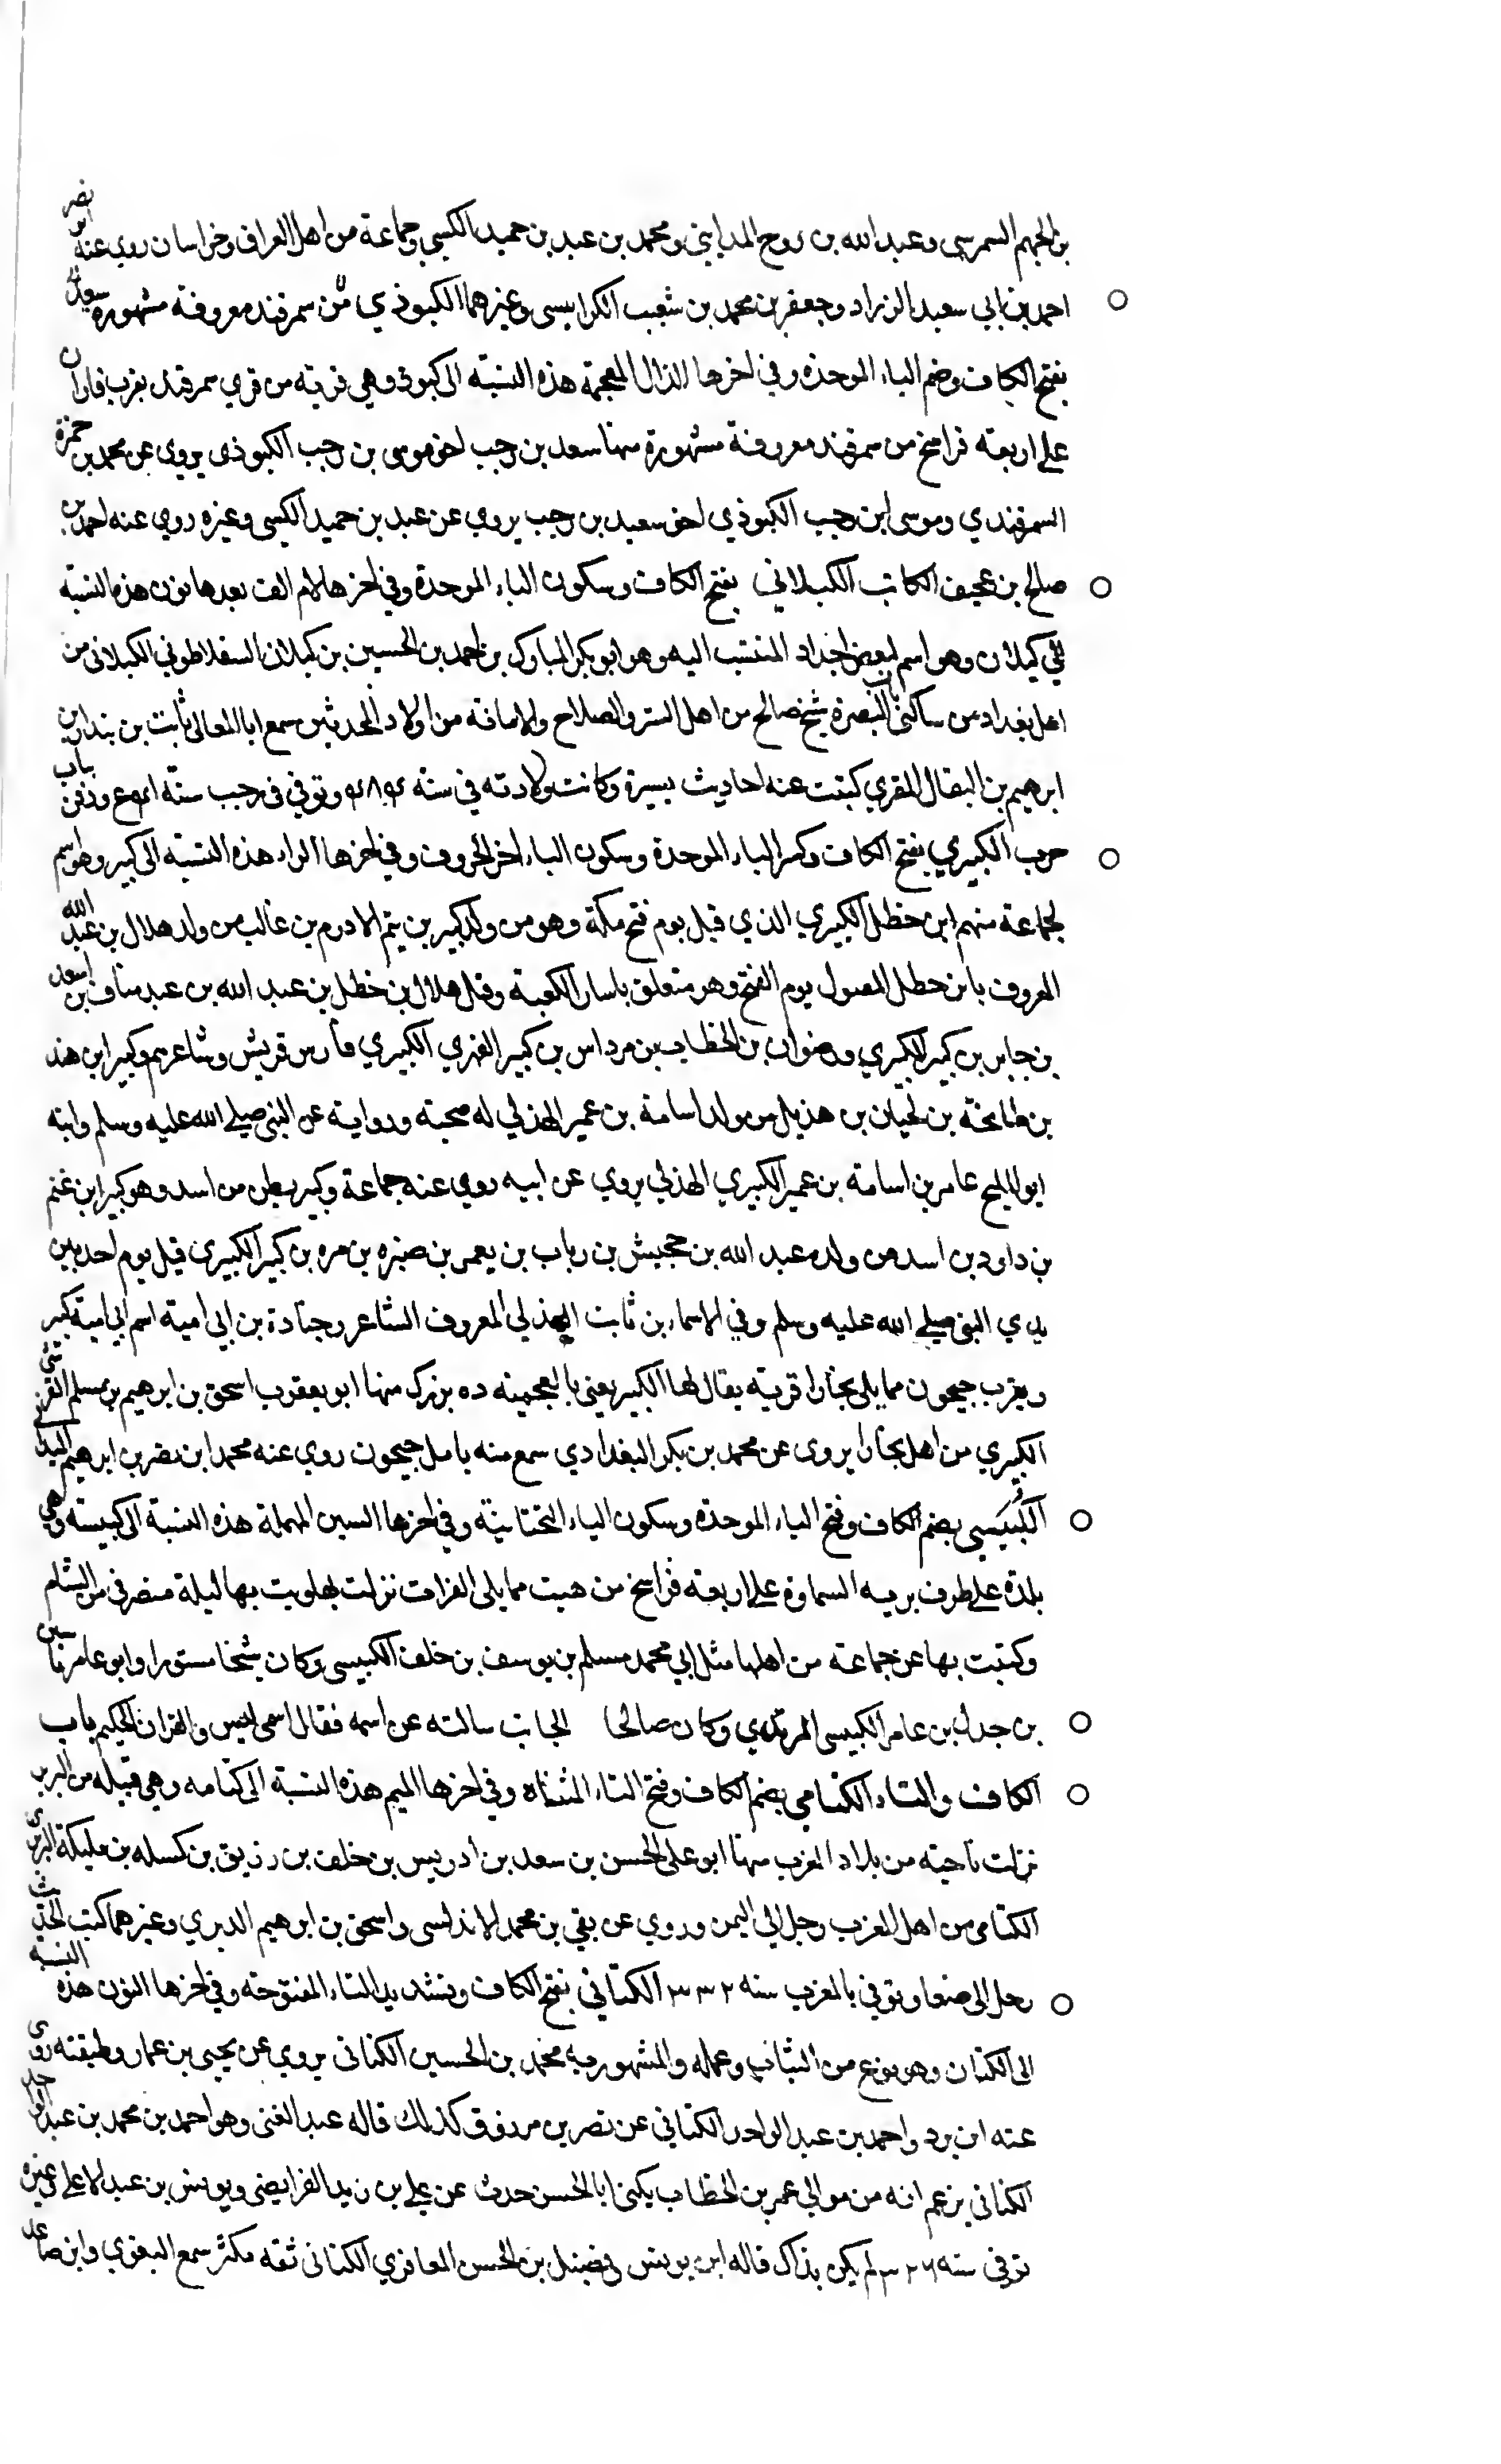 بن الجهم السمري وعبد الله بن روح المدايني ومحمد بن عبد بن حميد الكسي وجماعة من اهل العراق وخراسان روي عنه ابو نصر
احمد بن ابي سعيد الزراد وجعفر بن محمد بن شعيب الكرابيسي وغيرهما الكبوذي من سمرقند معروفة مشهورة سعد
بفتح الكاف وضم الباء الموحدة وفي اخرها الذال المعجمة هذه النسبة الى كبوذ وهي قرية من قري سمرقند بقرب فاران
على اربعة فراسخ من سمرقند معروفة مشهورة منها سعد بن رجب اخو موسى بن رجب الكبوذي يروي عن محمد بن حمزة
السمرقندي وموسى ابن رجب الكبوذي اخو سعيد بن رجب يروي عن عبد بن حميد الكسي وغيره روي عنه احمد بن
صالح بن عجيف الكاتب الكبلاني بفتح الكاف وسكون الباء الموحدة وفي اخرها لام الف بعدها نون هذه النسبة
الى كبلان وهو اسم لبعض اجداد المنتسب اليه وهو ابو بكر المبارك بن احمد بن الحسين بن كبلان السقلاطوني الكبلاني من
اهل بغداد من ساكني باب البصرة شيخ صالح من اهل الستر والصلاح والامانة من اولاد المحدثين سمع ابا المعالي ثابت بن بندار بن
ابرهيم بن البقال المقري كتبت عنه احاديث يسيرة وكانت ولادته في سنة وتوفي في رجب سنة ودفن بباب
حرب الكبيري بفتح الكاف وكسر الباء الموحدة وسكون الياء اخر الحروف وفي اخرها الراء هذه النسبة الى كبير وهو اسم
لجماعة منهم ابن خطل الكبيري الذي قبل يوم فتح مكة وهو من ولد كبير بن تيم الادرم بن غالب من ولد هلال بن عبد الله
المعروف بابن خطل المقتول يوم الفتح وهو متعلق باستار الكعبة وقيل هلال بن خطل بن عبد الله بن عبد مناف بن اسعد
بن جابر بن كبير الكبيري وضرار بن الخطاب بن مرداس بن كبير الفهري الكبيري فارس قريش وشاعرهم وكبير ابن هند
بن طابخة بن لحيان بن هذيل من ولد اسامة بن عمير الهذلي له صحبة ورواية عن النبي صلى الله عليه وسلم وابنه
ابو المليح عامر بن اسامة بن عمير الكبيري الهذلي يروي عن ابيه روي عنه جماعة وكبير بطن من اسد وهو كبير ابن غنم
بن داود بن اسد من ولده عبد الله بن جحش بن رباب بن يعمر بن صبره بن مره بن كبير الكبيري قتل يوم احد بين
يدي النبي صلى الله عليه وسلم وفي الاسماء بن ثابت الهذلي المعروف الشاعر وجنادة بن ابي امية اسم ابي امية كبير
وبقرب جيحون مما يلي بخارا قرية يقال لها الكبير يعني بالعجمية ده بزرك منها ابو يعقوب اسحق بن ابرهيم بن مسلم
الكبيري من اهل بخارا يروى عن محمد بن بكر البغدادي سمع منه بامل جيحون روي عنه محمد ابن نصر بن ابرهيم
الكبيسي بضم الكاف وفتح الباء الموحدة وسكون الياء التحتانية وفي اخرها السين المهملة هذه النسبة الى كبيسة وهي
بلدة على طرف برية السماوة على اربعة فراسخ من هيت مما يلي الفرات نزلت بها وبت بها ليلة منصرفي من الشام
وكتبت بها عن جماعة من اهلها مثل ابي محمد مسلم بن يوسف بن خلف الكبيسي وكان شيخا مستورا وابو عامر ياسين
بن جدل بن عامر الكبيسي وكان صالحا سالته عن اسمه فقال اسمي يس والقران الحكيم باب
الكاف والتاء الكتامي بضم الكاف وفتح التاء المثناه وفي اخرها الميم هذه النسبة الى كتامه وهي قبيله من البربر
نزلت ناحية من بلاد المغرب منها ابو على الحسن بن سعد بن ادريس بن خلف بن رزيق بن كسيله بن مليكة البربري
الكتامي من اهل المغرب رحل الى اليمن وروي عن بقي بن محمد الاندلسي واسحق بن ابرهيم الدبري وغيرهما كتب الحديث
رحل الى صنعا وتوفي بالمغرب سنه ٣٣٢ الكتاني بفتح الكاف وتشديد التاء المفتوحة وفي اخرها النون هذه النسبه
الى الكتان وهو نوع من الثياب وعمله والمشهور به محمد بن الحسين الكتاني يروي عن يحيى بن عمار وطبقته روى
عنه ابن برد واحمد بن عبد الواحد الكتاني عن نصر بن مرزوق كذلك قاله عبد الغنى وهو احمد بن محمد بن عبد الواحد
الكتاني يزعم انه من موالي عمر بن الخطاب يكنى ابا الحسن حدث عن علي بن زيد الفرايضي ويونس بن عبد الاعلى وغيره
توفي سنه ٣٢٦ لم يكن بذاك قاله ابن يونس بن الحسن المعافري الكتاني ثقه مكثر سمع البغوي وابن صاعد